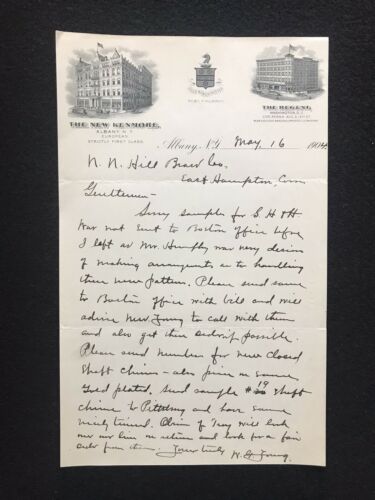 THE NEW KENMORE,
ALBANY N.Y.
EUROPEAN
STRICTLY FIRST CLASS.
THE REGENT,
WASHINGTON, D.C.
Albany, N.Y. May 16 1904
N. N. Hill Brass Co.
East Hampton, Conn
Gentlemen—
Sorry samples for S. H & H
was not sent to Boston office before
I left as Mr. Humphry was very
of making arrangements as to handling
these new pattern. Please send same
to Boston office with bill and will
advise Mr. Young to call with them
and also get their if possible.
Please send number for new closed
shaft chime - also price on same
Gold plated. Send sample # 19 shaft
chime to and have same
nicely tinned. of Troy will look
me over here on return and look for a fair
order from them. Yours truly
W. G. Young.